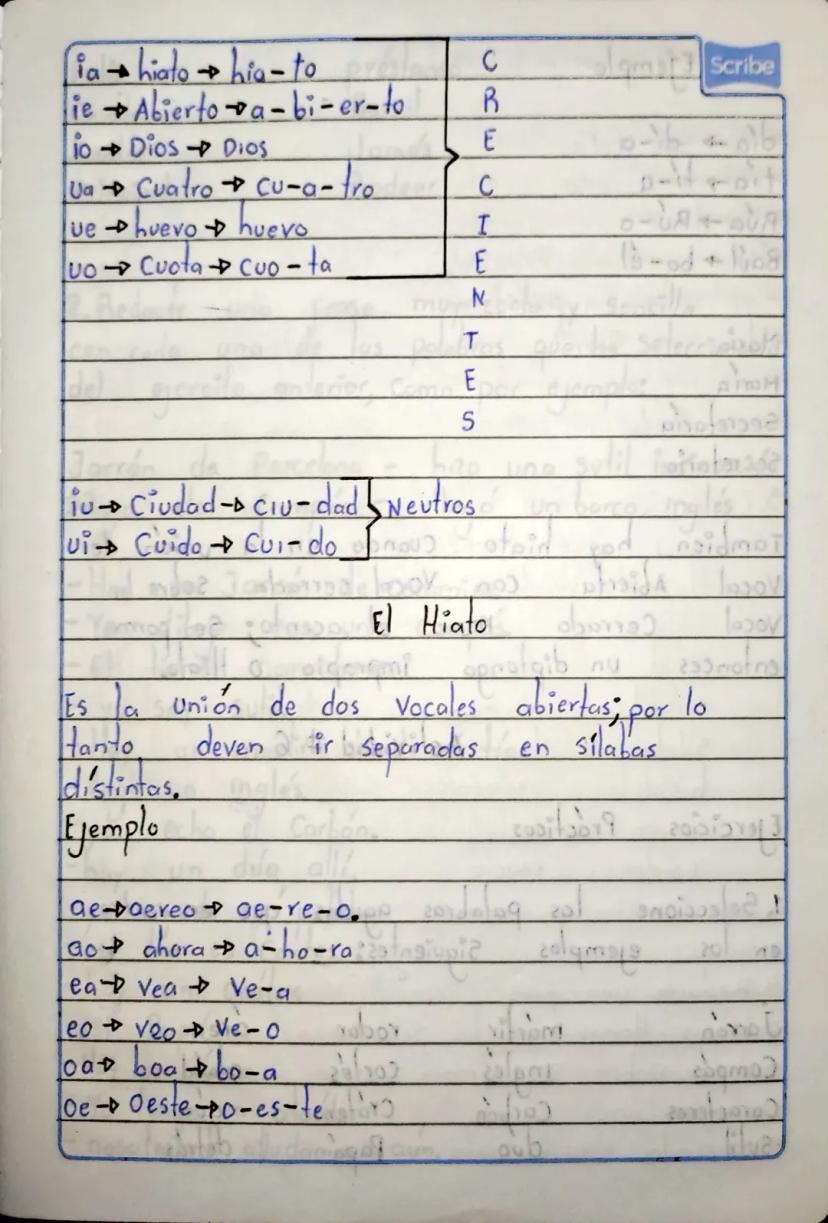 Scribe
ia → hiato → hia-to
ie → Abierto → a-bi-er-to
io → Dios → Dios
ua → Cuatro → cu-a-tro
ue → huevo → huevo
uo → Cuota → cuo-ta
C
R
E
C
I
E
N
T
E
S
iu → Ciudad → ciu-dad
ui → Cuido → Cui-do
Neutros
El Hiato
Es la unión de dos vocales abiertas; por lo
tanto deven ir separadas en sílabas
dístintas.
Ejemplo
ae → aereo → ae-re-o.
ao → ahora → a-ho-ra
ea → vea → Ve-a
eo → veo → Ve-o
oa → boa → bo-a
oe → Oeste → o-es-te